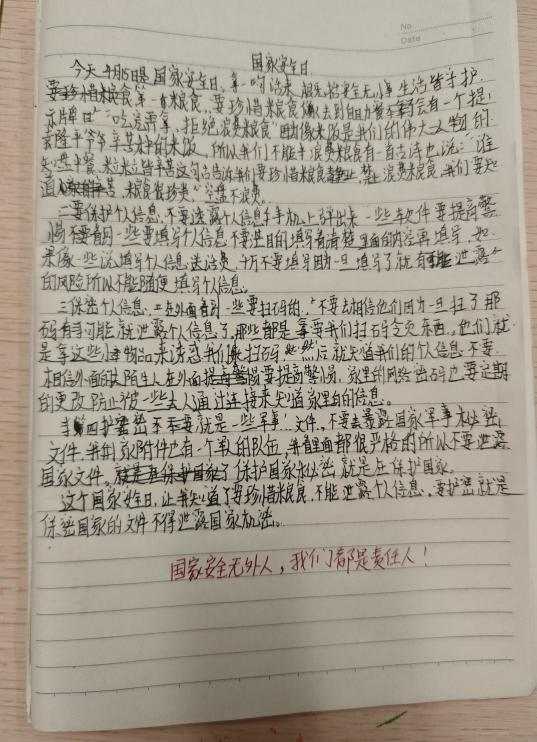 No
Date
国家安全日
今天4月15日是国家安全日，有一句话来 国家安全无小事 生活皆守护
要珍惜粮食 第一首粮食，要珍惜粮食 去到自助餐 会有一个提
示牌曰"吃完再拿，拒绝浪费粮食"因为像米饭是我们的伟大人物的
袁隆平爷爷辛苦种的米饭，所以我们不能半浪费粮食有一首古诗也说："谁
知盘中餐，粒粒皆辛苦这句古告诉我们要珍惜粮食 禁止浪费粮食，我们要知
道 粮食很珍贵 空盘不浪费。
二要保护个人信息，不要透露个人信息手机上弹出来一些软件要提高警
惕不要看到一些要填写个人信息 不要盲目的填写看清楚里面的内容再填写，如
果像一些说填写个人信息送话费，千万不要填写因为一旦填写了就有可能泄露个
的风险所以不能随便填写个人信息。
三保密个人信息，在外面看到一些要扫码的，不要去相信他们因为一旦扫了那
码有可能就泄露个人信息了，那些都是拿要我们扫码交免东西，他们就
是拿这些小物品来诱惑我们扫码 然后就知道我们的个人信息 不要
相信外面的陌生人 在外面 要提高警惕，家里的网络密码也要定期
的更改 防止被一些去人通过连接来知道家里的信息。
第四护密 不要就是一些军事文件，不要去暴露国家军事机密
文件，我们家附件也有一个军人的队伍，并看里面都很严格的所以不要泄露
国家文件。 了保护国家机密 就是在保护国家。
这个国家安全日，让我知道了要珍惜粮食，不能泄露个人信息，要护密就是
保密国家的文件不得泄露国家机密。
国家安全无外人，我们都是责任人！